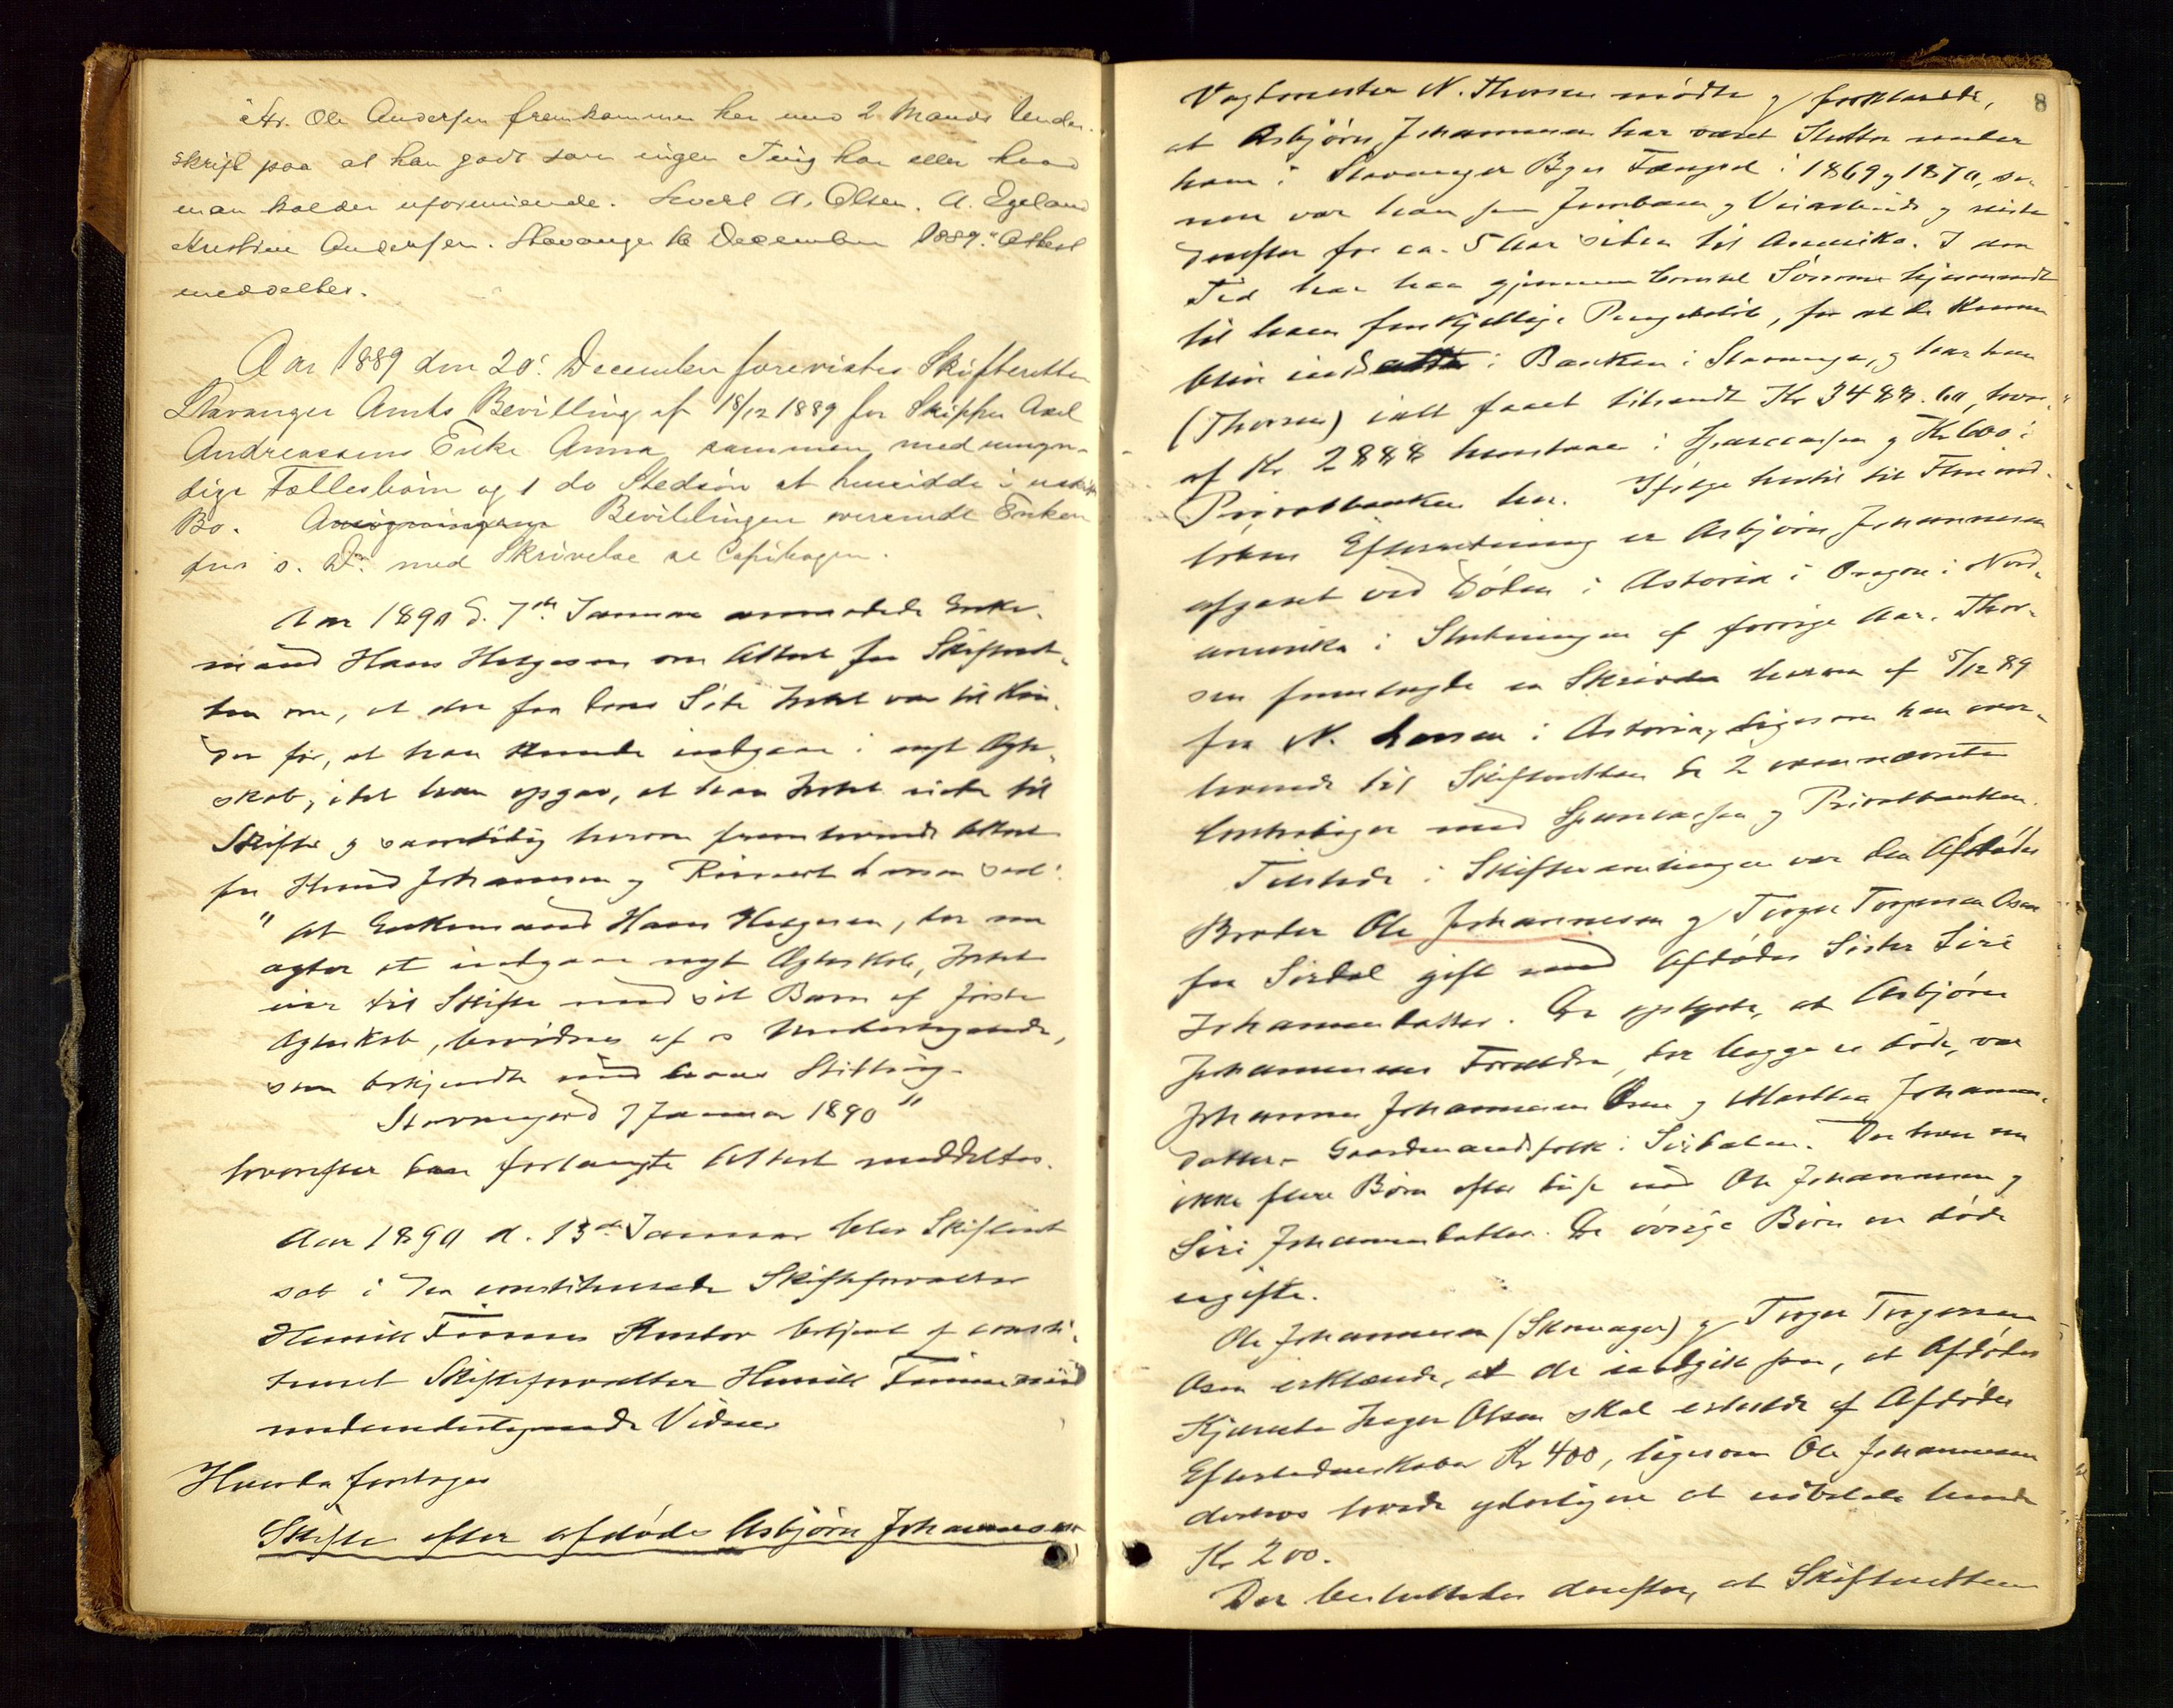 "Hr. Ole Andersen fremkommer her med 2 Mands Under-
skrift paa at han godt som ingen Ting har eller hvad
man kalder uformuende. Sivert A. Olsen. A. Egeland
Kristine Andersen. Stavanger 16 December 1889." Attest
meddeltes.
Aar 1889 den 20. December forevistes Skifteretten
Stavanger Amts Bevilling af 18/12 1889 for Skipper Axel
Andreassens Enke Anna sammen med umyn-
dige Fællesbørn og 1 do Stedsøn at hensidde i uskiftet
Bo. Bevillingen oversendt Enken
s. D. med Skrivelse
Aar 1890 d. 7de Januar anmodede Enke-
mand Hans Helgesen om Attest fra Skifteret-
ten om, at der fra dens Side Intet var til Hin-
der for, at han kunde indgaa i nyt Ægte-
skab, idet han opgav, at han Intet eiede til
Skifte og samtidig herom fremlevered Attest
fra Johannesen og Larsen saal:
"At Enkemand Hans Helgesen, der nu
agter at indgaa nyt Ægteskab, Intet
eier til Skifte med sit Barn af første
Ægteskab, bevidnes af os Undertegnede,
som bekjendte med hans Stilling.
7 Januar 1890"
hvorefter den forlangte Attest meddeltes.
Aar 1890 d. 13de Januar blev Skifteret
sat i den constituerede Skifteforvalter
Henrik Finnes Kontor betjent af consti-
tueret Skifteforvalter Henrik Finne med
medundertegnede Vidner
Hvorda foretoges
Skifte efter afdøde Asbjørn Johannesen
8
Vagtmester N. Thorsen mødte og forklarede,
at Asbjørn Johannesen har været Slutter under
ham i Stavanger Byes Fængsel i 1869 og 1870, se-
nere var han og reiste
derefter for ca. 5 Aar siden til Amerika. I den
Tid har han gjennem Consul Sømme hjemsendt
til ham forskjellige Pengebeløb, for at de kunne
blive indsatte i Banken i Stavanger, og har han
(Thorsen) ialt faaet tilsendt Kr 3488.60, hvor-
af Kr. 2888 henstaar i Sparecassen og Kr 600 i
Privatbanken her. Ifølge hertil til
Efterretning er Asbjørn Johannesen
afgaaet ved Døden i Astoria i Oregon i Nord-
amerika i Slutningen af forrige Aar. Thor-
sen fremlagde en Skrivelse herom af 5/12 89
fra N. Larsen i Astoria, ligesom han over-
leverede til Skifteretten de 2 ovennævnte
Contrabøger med Sparecassen og Privatbanken.
Tilstede i Skiftesamlingen var den Afdødes
Broder Ole Johannesen og Torger Torgersen Osen
fra Sirdal gift med Afdødes Søster Siri
Johannesdatter. De oplyste, at Asbjørn
Johannesens Forældre, der begge er døde, var
Johannes Johannesen Osen og Marthea Johannes-
datter, Gaardmandsfolk i Sirdalen. Der lever nu
ikke flere Børn efter disse end Ole Johannesen og
Siri Johannesdatter. De øvrige Børn er døde
ugifte.
Ole Johannesen (Skomager) og Torger Torgersen
Osen erklærede, at de indgik paa, at Afdødes
Kjæreste Inger Olsen skal erholde af Afdødes
Efterladenskaber Kr 400, ligesom Ole Johannesen
derhos lovede yderligere at udbetale hende
Kr 200.
Der besluttedes derefter, at Skifteretten